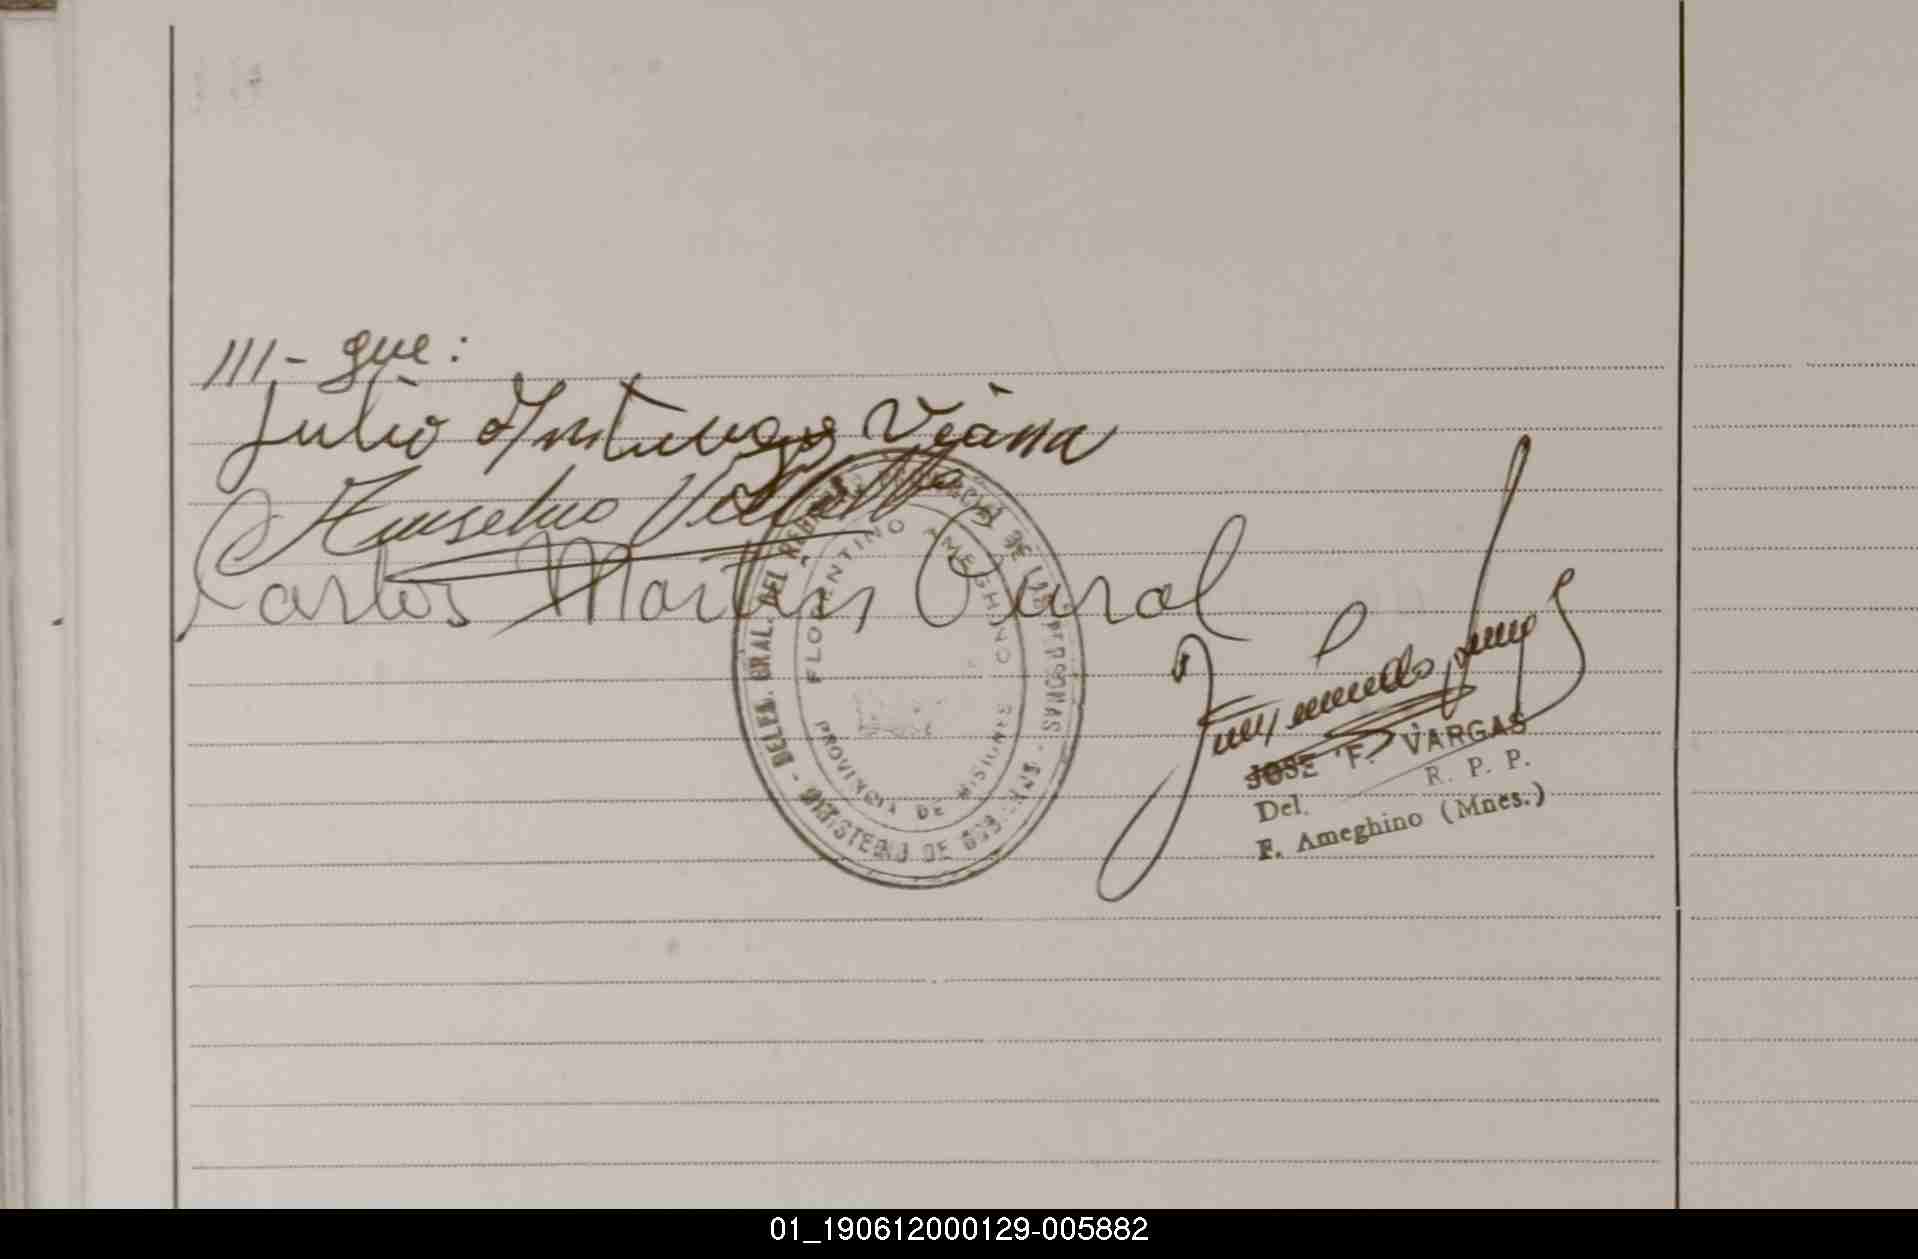 III- gue:
Julio Antunes Viana
Anselmo
Carlos Martin
DELEG. GRAL. DEL REGISTRO PROVINCIAL DE LAS PERSONAS
FLORENTINO AMEGHINO
PROVINCIA DE MISIONES
MINISTERIO DE GOB.
JOSE F. VARGAS
Del. R. P. P.
F. Ameghino (Mnes.)
01_190612000129-005882